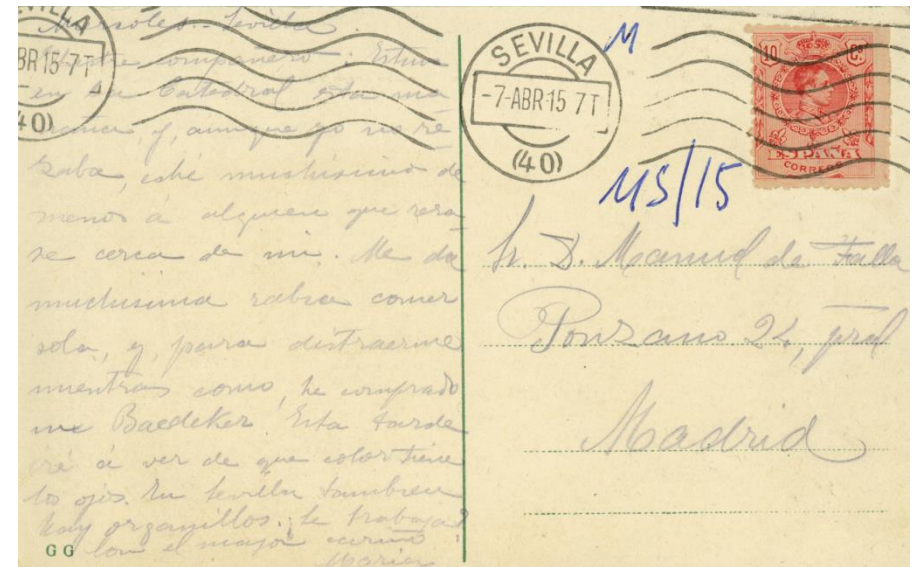 SEVILLA
Miércoles - Sevilla
ABR 15 7 T
(40)
Ilustre compañero: Estuve
en la Catedral esta ma
ñana, y, aunque yo no re
zaba, eché muchisimo de
menos á alguien que reza
se cerca de mi. Me da
muchisima rabia comer
sola, y, para distraerme
mientras como, he comprado
un Baedeker. Esta tarde
iré á ver de que color tiene
los ojos. En Sevilla tambien
hay organillos. Se trabaja?
Con el mayor cariño
María
G G
SEVILLA
-7-ABR-15 7 T
(40)
M
MS/15
10 Cs
ESPAÑA
CORREOS
Sr. D. Manuel de Falla
Ponzano 24, pral
Madrid